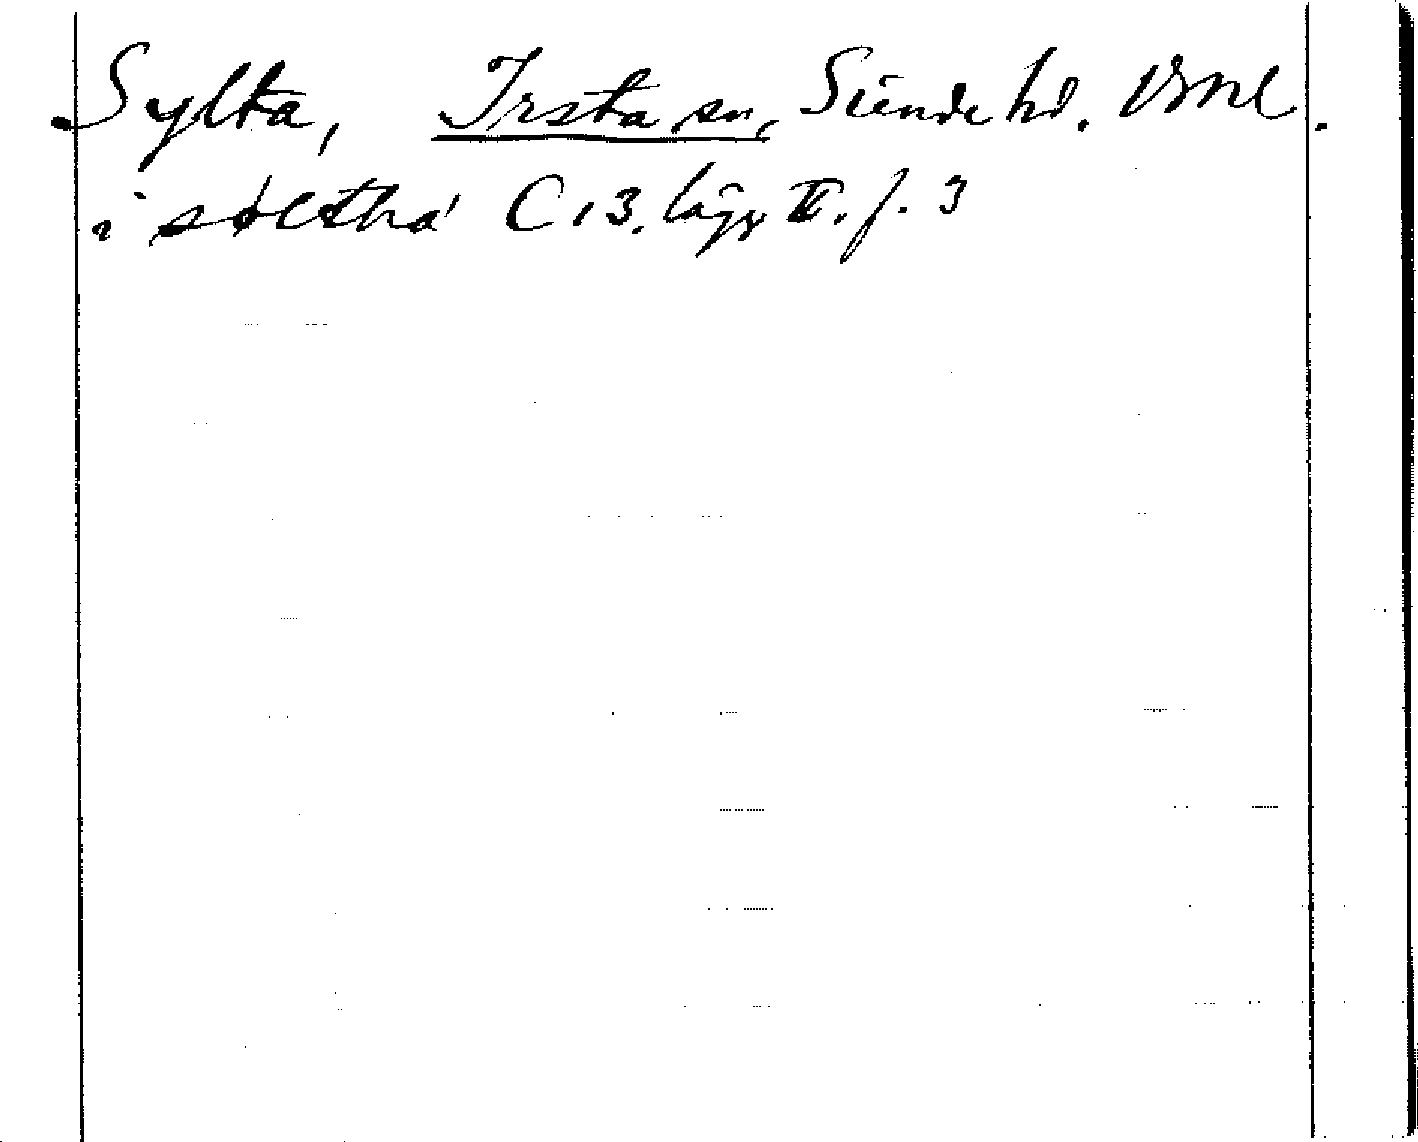 Sylta, Irsta sn, Siende hd. Vsml.
i søltha C 13. lägg II. f. 3